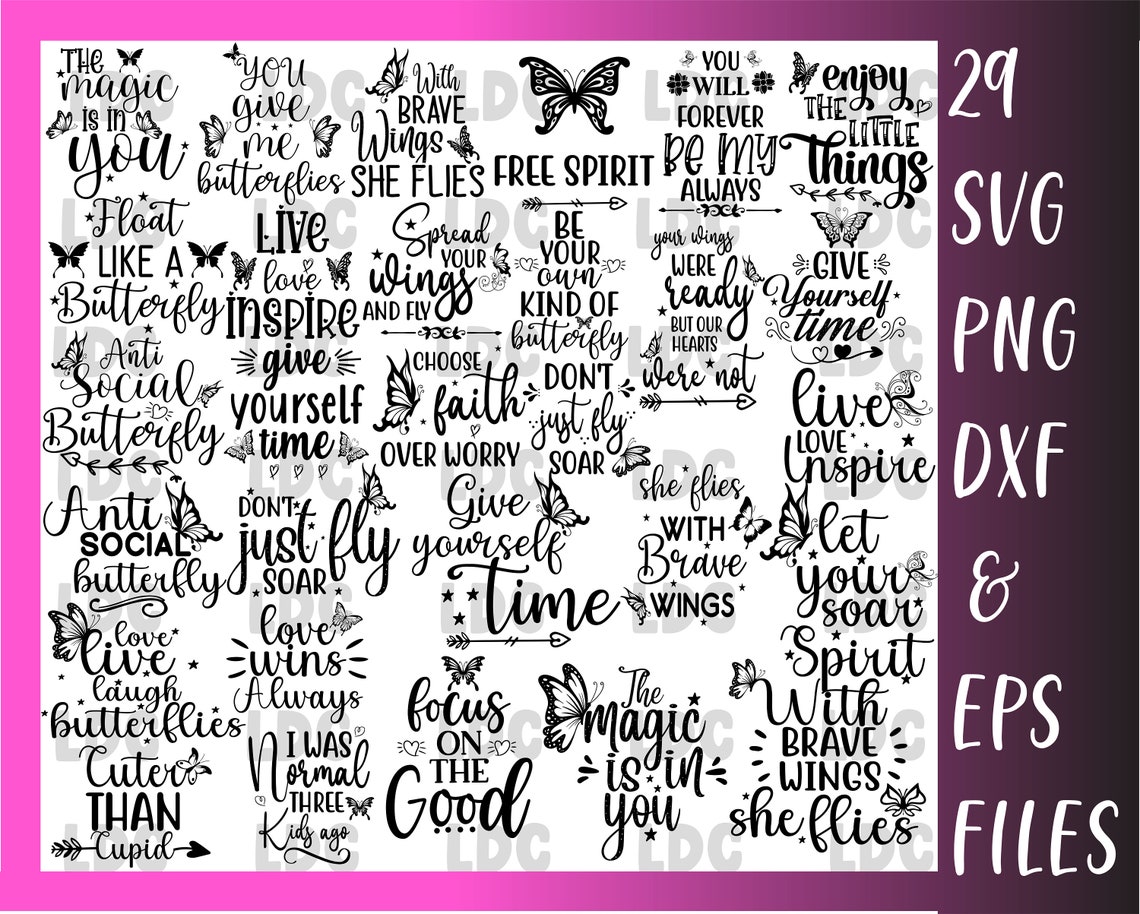 THE
magic
IS IN
you
YOU
give
me
butterflies
With
BRAVE
Wings
SHE FLIES
FREE SPIRIT
YOU
WILL
FOREVER
BE MY
ALWAYS
enjoy
THE
LITTLE
things
Float
LIKE A
Butterfly
LIVE
love
INSPIRE
Spread
YOUR
wings
AND FLY
BE
YOUR
own
KIND OF
butterfly
your wings
WERE
ready
BUT OUR
HEARTS
were not
GIVE
Yourself
time
Anti
Social
Butterfly
give
yourself
time
CHOOSE
faith
OVER WORRY
DON'T
just fly
SOAR
live
LOVE
Inspire
Anti
SOCIAL
butterfly
DON'T
just fly
SOAR
Give
yourself
time
she flies
WITH
Brave
WINGS
let
your
soar
Spirit
love
live
laugh
butterflies
love
wins
Always
focus
ON
THE
Good
The
Magic
is in
you
With
BRAVE
WINGS
she flies
Cuter
THAN
Cupid
I WAS
Normal
THREE
Kids ago
29
SVG
PNG
DXF
&
EPS
FILES
LDC